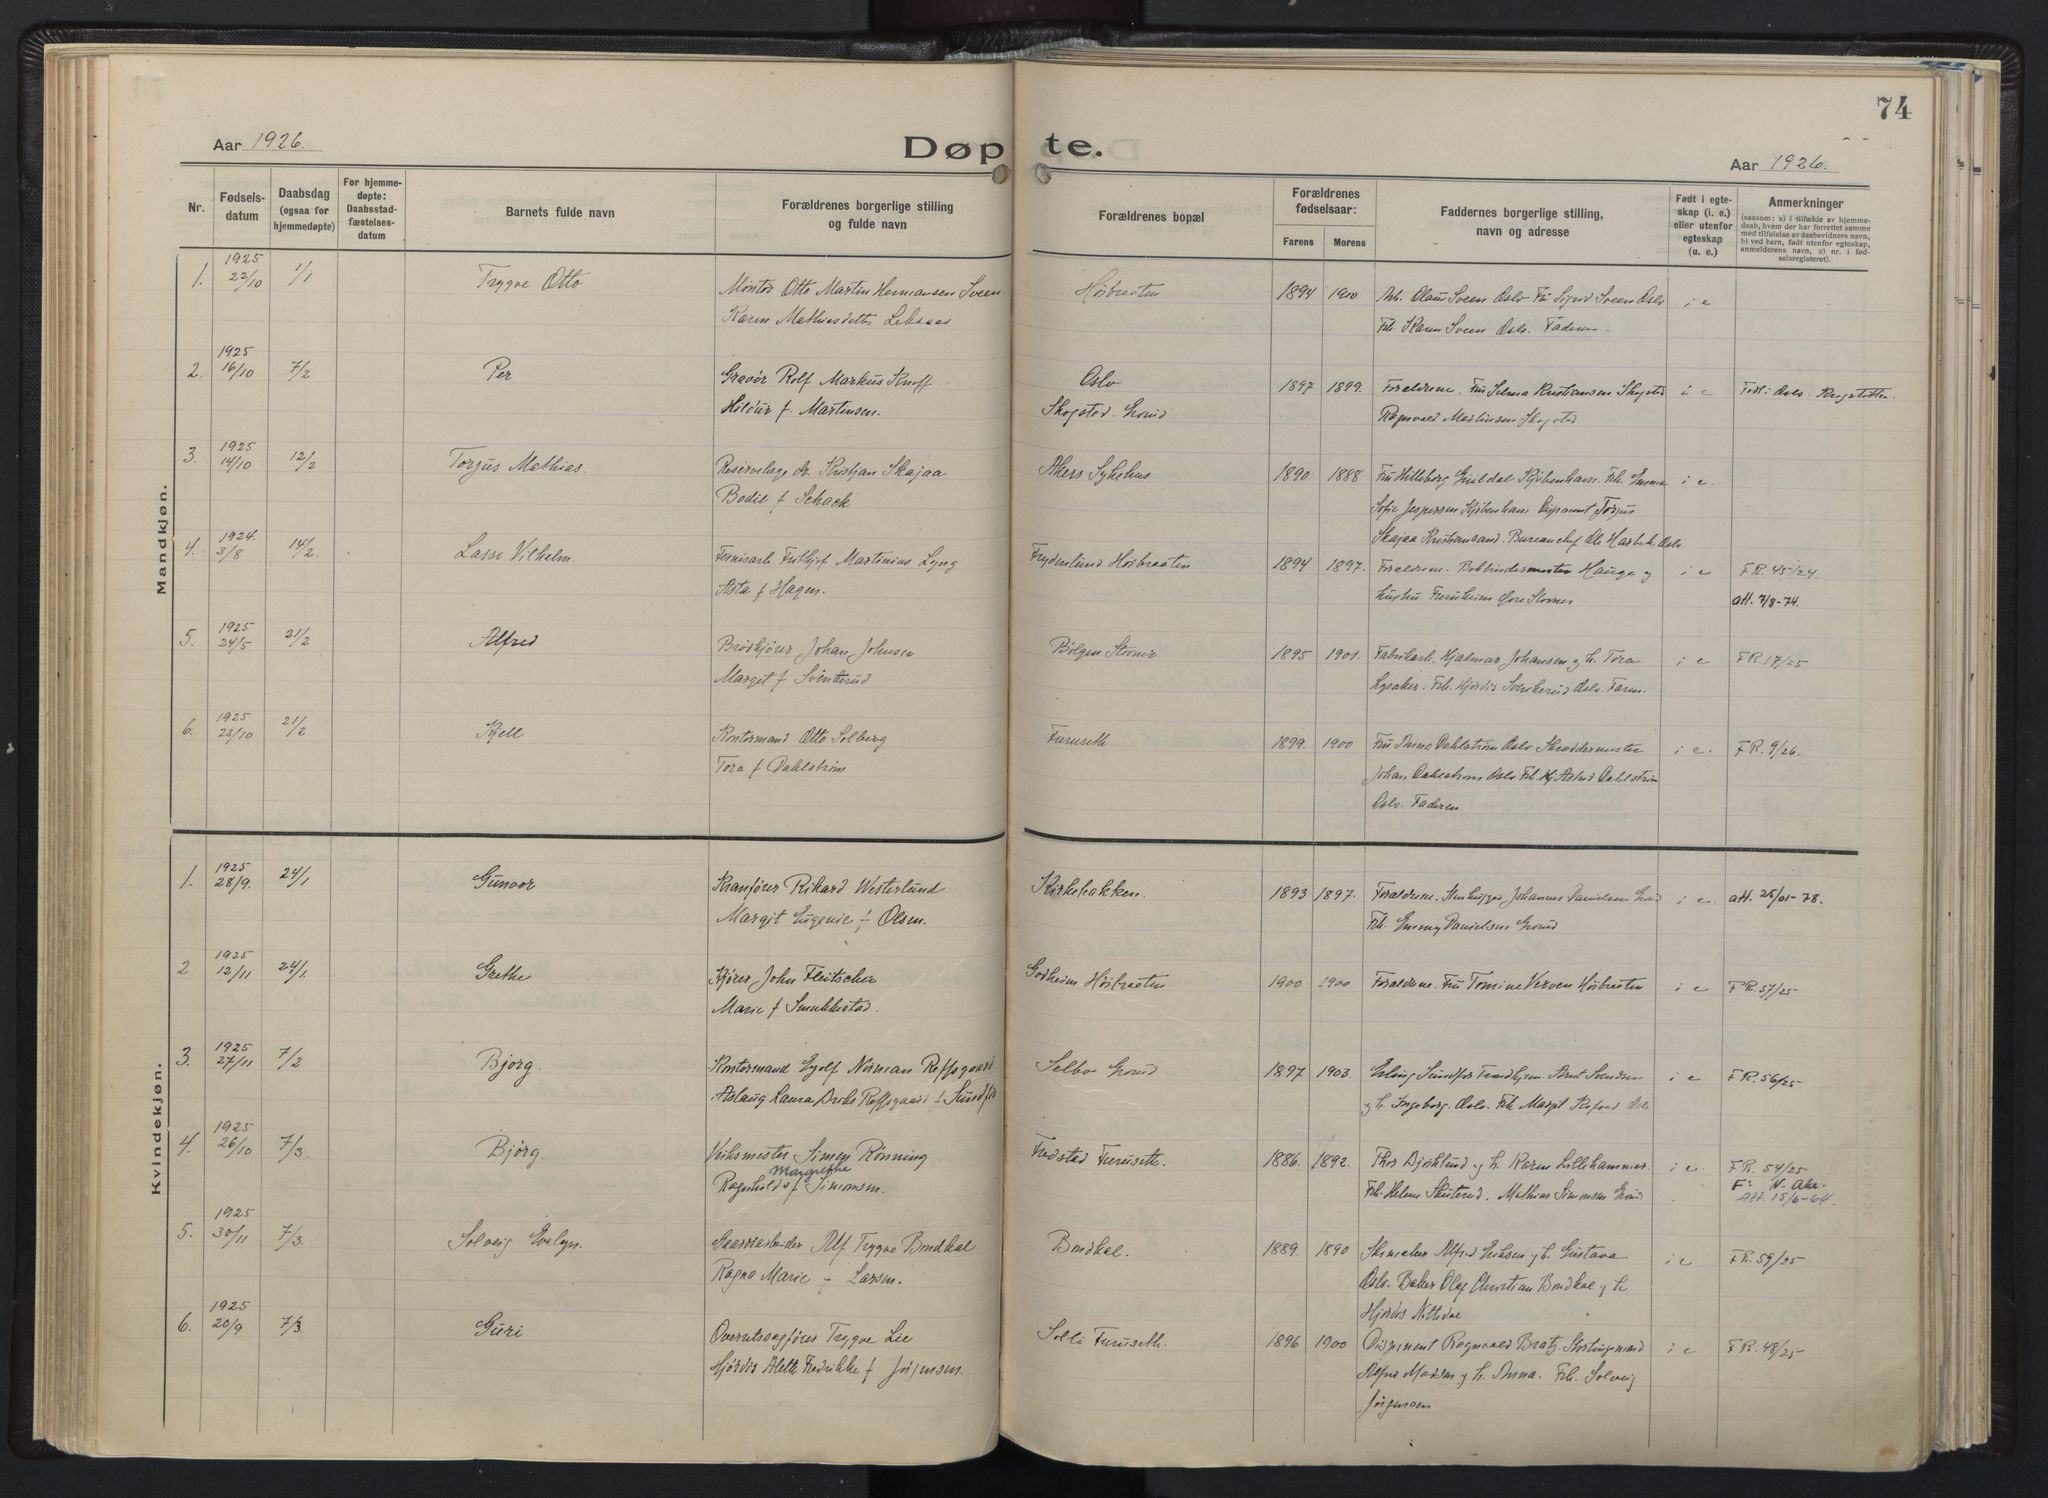 74
Aar 1926.
Døpte.
Aar 1926.
Nr.
Fødsels-
datum
Daabsdag
(ogsaa for
hjemmedøpte)
For hjemme-
døpte:
Daabsstad-
fæstelses-
datum
Barnets fulde navn
Forældrenes borgerlige stilling
og fulde navn
Forældrenes bopæl
Forældrenes
fødselsaar:
Farens
Morens
Faddernes borgerlige stilling,
navn og adresse
Født i egte-
skap (i. e.)
eller utenfor
egteskap
(u. e.)
Anmerkninger
(saasom: a) i tilfælde av hjemme-
daab, hvem der har forrettet samme
med tilføielse av daabsvidners navn,
b) ved barn, født utenfor egteskap,
anmelderens navn, c) nr. i fød-
selsregisteret).
Mandkjøn.
1. 1925 22/10 1/1 Trygve Otto
Montør Otto Martin Hermansen Sveen.
Karen Mathiesdatter
Høibraaten 1894 1900
Arb. Olaus Sveen Oslo Fru Sigrid Sveen Oslo
Frk. Karen Sveen Oslo. Faderen.
i e
2. 1925 16/10 7/2 Per
Gravør Rolf Markus Knoff
Hildur f. Martinsen.
Oslo
Skogstad. Grorud
1897 1899.
Forældrene. Fru Selma Kristiansen Skogstad
Ragnvald Martinsen Skogstad
i e Født i Oslo.
3. 1925 14/10 12/2 Torjus Mathias.
Reservelæge dr. Kristjan Skajaa
Bodil f Schack
Akers Sykehus 1890 1888
Fru Kjøbenhavn. Frk. Emma
Sofie Jespersen Kjøbenhavn Disponent Torjus
Skajaa Kristiansand. Bureauchef Ole Oslo
i e.
4. 1924. 3/8 14/2. Lasse Vilhelm.
Fernisarb. Frithjof Martinius Lyng
Asta f Hagen.
Frydenlund Høibraaten 1894 1897.
Forældrene. Bokbindermester Hauge og
hustru Furuheim Øvre Stovner
i e FR. 45/24.
att. 7/8-74.
5. 1925 24/5 21/2 Alfred
Brødkjører Johan Johnsen
Marget f
Bølgen Stovner 1895 1901.
Fabrikarb. Hjalmar Johansen og h. Tora
Lysaker. Frk. Hjørdis Oslo. Faren.
i e FR. 17/25
6. 1925 23/10 21/2 Kjell
Kontormand Otto Solberg
Tora f Dahlstrøm
Furuseth 1899. 1900
Fru Anna Dahlstrøm Oslo Skræddermester
Johan Dahlstrøm Oslo Frk. Astrid Dahlstrøm
Oslo. Faderen
i e. FR. 9/26.
Kvindekjøn.
1. 1925 28/9. 24/1 Gunvor
Kranfører Rikard Westerlund
Margit Eugenie f Olsen.
Kirkebakken. 1893 1897.
Forældrene. Stenhugger Johannes Danielsen Grorud
Frk. Emmy Danielsen Grorud
i e. att. 25/01-78.
2 1925 12/11 24/1 Grethe
Kjører John Fleischer
Marie f Smukkestad.
Godheim Høibraaten 1900 1900
Forældrene. Fru Tomine Verven Høibraaten
i e FR. 57/25
3. 1925 27/11 7/2 Bjørg.
Kontormand Eyolf Norman Reffsgaard
Aslaug Laura Reffsgaard f Sundfør
Selbo Grorud 1897 1903.
Erling Sundfør Trondhjem.
og h. Ingeborg. Oslo. Frk. Margit
i e FR. 56/25
4. 1925 26/10 7/3. Bjørg.
Verksmester Simen Rønning
Margrethe
Ragnhild f Simonsen.
Fredstad Furuseth. 1886. 1892.
Thor Bjørklund og h. Karen Lillehammer.
Frk. Helene Mathias Simonsen Grorud
i e. FR. 54/25
Att. 15/6-64.
5. 1925 30/11 7/3. Solveig Evelyn.
Gaardsarbeider Alf Trygve Bondkal
Ragna Marie f Larsen.
Bondkal. 1889. 1890
Skomaker Alfred Eriksen og h. Gustava
Oslo. Baker Olaf Christian Bondkal og h
Hjørdis Nittedal
i e FR. 59/25
6. 1925 20/9 7/3. Guri
Overretssagfører Trygve Lie
Hjørdis Alette Fredrikke f Jørgensen.
Solli Furuseth. 1896 1900
Disponent Ragnvald Bratz. Stortingsmand
Alfred Madsen og h. Anna. Frk. Solveig
Jørgensen
i e FR. 48/25